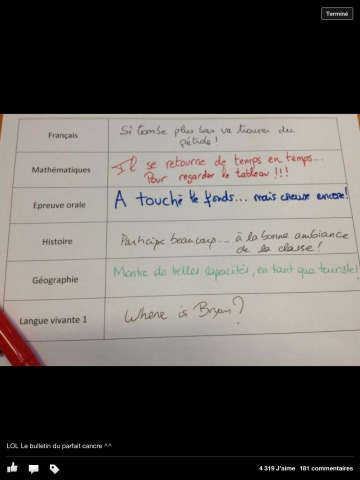 Terminé
Français
Si tombe plus bas va trouver du
pétrole !
Mathématiques
Il se retourne de temps en temps...
Pour regarder le tableau !!!
Epreuve orale
A touché le fonds... mais creuse encore !
Histoire
Participe beaucoup... à la bonne ambiance
de la classe !
Géographie
Montre de belles capacités, en tant que touriste !
Langue vivante 1
Where is Bryan ?
LOL Le bulletin du parfait cancre ^^
4 319 J'aime 181 commentaires